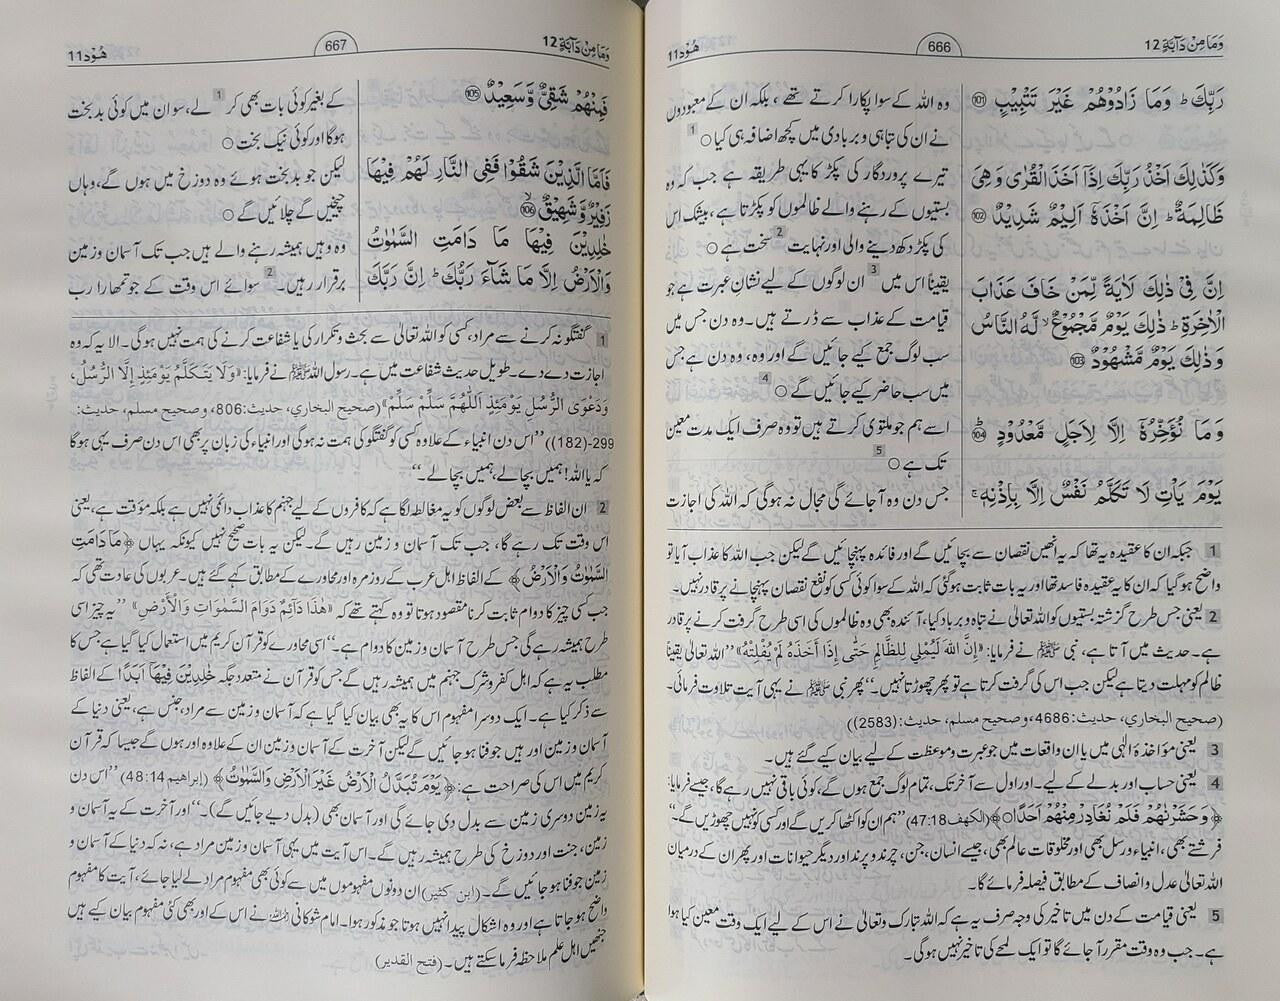 وَمَا مِنْ دَآبَّةٍ 12
666
هُوْد 11
رَبِّكَ ؕ وَمَا زَادُوْهُمْ غَيْرَ تَتْبِيْبٍ ﴿101﴾
وَكَذٰلِكَ اَخْذُ رَبِّكَ اِذَاۤ اَخَذَ الْقُرٰى وَهِىَ
ظَالِمَةٌ ؕ اِنَّ اَخْذَهٗۤ اَلِيْمٌ شَدِيْدٌ ﴿102﴾
اِنَّ فِىْ ذٰلِكَ لَاٰيَةً لِّمَنْ خَافَ عَذَابَ
الْاٰخِرَةِ ؕ ذٰلِكَ يَوْمٌ مَّجْمُوْعٌ ۙ لَّهُ النَّاسُ
وَذٰلِكَ يَوْمٌ مَّشْهُوْدٌ ﴿103﴾
وَمَا نُؤَخِّرُهٗۤ اِلَّا لِاَجَلٍ مَّعْدُوْدٍ ؕ ﴿104﴾
يَوْمَ يَاْتِ لَا تَكَلَّمُ نَفْسٌ اِلَّا بِاِذْنِهٖ ۚ
وہ اللہ کے سوا پکارا کرتے تھے، بلکہ ان کے معبودوں
نے ان کی تباہی و بربادی میں کچھ اضافہ ہی کیا 1 ○
تیرے پروردگار کی پکڑ کا یہی طریقہ ہے جب کہ وہ
بستیوں کے رہنے والے ظالموں کو پکڑتا ہے، بیشک اس
کی پکڑ دکھ دینے والی اور نہایت 2 سخت ہے ○
یقیناً اس میں 3 ان لوگوں کے لیے نشانِ عبرت ہے جو
قیامت کے عذاب سے ڈرتے ہیں۔ وہ دن جس میں
سب لوگ جمع کیے جائیں گے اور وہ، وہ دن ہے جس
میں سب حاضر کیے جائیں گے 4 ○
اسے ہم جو ملتوی کرتے ہیں تو وہ صرف ایک مدت معین
تک ہے 5 ○
جس دن وہ آجائے گی مجال نہ ہوگی کہ اللہ کی اجازت
1 جبکہ ان کا عقیدہ یہ تھا کہ یہ انھیں نقصان سے بچائیں گے اور فائدہ پہنچائیں گے لیکن جب اللہ کا عذاب آیا تو
واضح ہو گیا کہ ان کا یہ عقیدہ فاسد تھا اور یہ بات ثابت ہو گئی کہ اللہ کے سوا کوئی کسی کو نفع نقصان پہنچانے پر قادر نہیں۔
2 یعنی جس طرح گزشتہ بستیوں کو اللہ تعالیٰ نے تباہ و برباد کیا، آئندہ بھی وہ ظالموں کی اسی طرح گرفت کرنے پر قادر
ہے۔ حدیث میں آتا ہے، نبی ﷺ نے فرمایا: «إِنَّ اللهَ لَيُمْلِي لِلظَّالِمِ حَتَّى إِذَا أَخَذَهُ لَمْ يُفْلِتْهُ» ”اللہ تعالیٰ یقیناً
ظالم کو مہلت دیتا ہے لیکن جب اس کی گرفت کرتا ہے تو پھر چھوڑتا نہیں۔“ پھر نبی ﷺ نے یہی آیت تلاوت فرمائی۔
(صحیح البخاري، حدیث: 4686، و صحیح مسلم، حدیث: (2583))
3 یعنی مؤاخذۂ الٰہی میں یا ان واقعات میں جو عبرت و موعظت کے لیے بیان کیے گئے ہیں۔
4 یعنی حساب اور بدلے کے لیے۔ اور اول سے آخر تک، تمام لوگ جمع ہوں گے، کوئی باقی نہیں رہے گا، جیسے فرمایا:
﴿وَحَشَرْنٰهُمْ فَلَمْ نُغَادِرْ مِنْهُمْ اَحَدًا﴾ (الكهف 47:18) ”ہم ان کو اکٹھا کریں گے اور کسی کو نہیں چھوڑیں گے۔“
فرشتے بھی، انبیاء و رسل بھی اور مخلوقات عالم بھی، جیسے انسان، جن، چرند و پرند اور دیگر حیوانات اور پھر ان کے درمیان
اللہ تعالیٰ عدل و انصاف کے مطابق فیصلہ فرمائے گا۔
5 یعنی قیامت کے دن میں تاخیر کی وجہ صرف یہ ہے کہ اللہ تبارک و تعالیٰ نے اس کے لیے ایک وقت معین کیا ہوا
ہے۔ جب وہ وقت مقرر آجائے گا تو ایک لمحے کی تاخیر نہیں ہوگی۔
وَمَا مِنْ دَآبَّةٍ 12
667
هُوْد 11
فَمِنْهُمْ شَقِىٌّ وَّسَعِيْدٌ ﴿105﴾
فَاَمَّا الَّذِيْنَ شَقُوْا فَفِى النَّارِ لَهُمْ فِيْهَا
زَفِيْرٌ وَّشَهِيْقٌ ۙ ﴿106﴾
خٰلِدِيْنَ فِيْهَا مَا دَامَتِ السَّمٰوٰتُ
وَالْاَرْضُ اِلَّا مَا شَآءَ رَبُّكَ ؕ اِنَّ رَبَّكَ
کے بغیر کوئی بات بھی کر 1 لے، سو ان میں کوئی بد بخت
ہوگا اور کوئی نیک بخت ○
لیکن جو بد بخت ہوئے وہ دوزخ میں ہوں گے، وہاں
چیخیں گے چلائیں گے ○
وہ وہیں ہمیشہ رہنے والے ہیں جب تک آسمان و زمین
برقرار رہیں۔ 2 سوائے اس وقت کے جو تمھارا رب
1 گفتگو نہ کرنے سے مراد، کسی کو اللہ تعالیٰ سے بحث و تکرار کی یا شفاعت کرنے کی ہمت نہیں ہوگی۔ الا یہ کہ وہ
اجازت دے دے۔ طویل حدیث شفاعت میں ہے۔ رسول اللہ ﷺ نے فرمایا: «وَلَا يَتَكَلَّمُ يَوْمَئِذٍ إِلَّا الرُّسُلُ،
وَدَعْوَى الرُّسُلِ يَوْمَئِذٍ اَللّٰهُمَّ سَلِّمْ سَلِّمْ» (صحیح البخاري، حدیث: 806، و صحیح مسلم، حدیث:
299-(182)) ”اس دن انبیاء کے علاوہ کسی کو گفتگو کی ہمت نہ ہوگی اور انبیاء کی زبان پر بھی اس دن صرف یہی ہوگا
کہ یا اللہ! ہمیں بچالے، ہمیں بچالے۔“
2 ان الفاظ سے بعض لوگوں کو یہ مغالطہ لگا ہے کہ کافروں کے لیے جہنم کا عذاب دائمی نہیں ہے بلکہ مؤقت ہے، یعنی
اس وقت تک رہے گا، جب تک آسمان و زمین رہیں گے۔ لیکن یہ بات صحیح نہیں کیونکہ یہاں ﴿مَا دَامَتِ
السَّمٰوٰتُ وَالْاَرْضُ﴾ کے الفاظ اہل عرب کے روز مرہ اور محاورے کے مطابق کہے گئے ہیں۔ عربوں کی عادت تھی کہ
جب کسی چیز کا دوام ثابت کرنا مقصود ہوتا تو وہ کہتے تھے کہ «هٰذَا دَائِمٌ دَوَامَ السَّمٰوَاتِ وَالْأَرْضِ» ”یہ چیز اسی
طرح ہمیشہ رہے گی جس طرح آسمان و زمین کا دوام ہے۔“ اسی محاورے کو قرآن کریم میں استعمال کیا گیا ہے جس کا
مطلب یہ ہے کہ اہل کفر و شرک جہنم میں ہمیشہ رہیں گے جس کو قرآن نے متعدد جگہ خٰلِدِيْنَ فِيْهَاۤ اَبَدًا کے الفاظ
سے ذکر کیا ہے۔ ایک دوسرا مفہوم اس کا یہ بھی بیان کیا گیا ہے کہ آسمان و زمین سے مراد، جنس ہے، یعنی دنیا کے
آسمان و زمین اور ہیں جو فنا ہو جائیں گے لیکن آخرت کے آسمان و زمین ان کے علاوہ اور ہوں گے جیسا کہ قرآن
کریم میں اس کی صراحت ہے: ﴿يَوْمَ تُبَدَّلُ الْاَرْضُ غَيْرَ الْاَرْضِ وَالسَّمٰوٰتُ﴾ (إبراهيم 48:14) ”اس دن
یہ زمین دوسری زمین سے بدل دی جائے گی اور آسمان بھی (بدل دیے جائیں گے)۔“ اور آخرت کے یہ آسمان و
زمین، جنت اور دوزخ کی طرح ہمیشہ رہیں گے۔ اس آیت میں یہی آسمان و زمین مراد ہے، نہ کہ دنیا کے آسمان و
زمین جو فنا ہو جائیں گے۔ (ابن کثیر) ان دونوں مفہوموں میں سے کوئی بھی مفہوم مراد لے لیا جائے، آیت کا مفہوم
واضح ہو جاتا ہے اور وہ اشکال پیدا نہیں ہوتا جو مذکور ہوا۔ امام شوکانی رحمہ اللہ نے اس کے اور بھی کئی مفہوم بیان کیے ہیں
جنھیں اہل علم ملاحظہ فرما سکتے ہیں۔ (فتح القدیر)